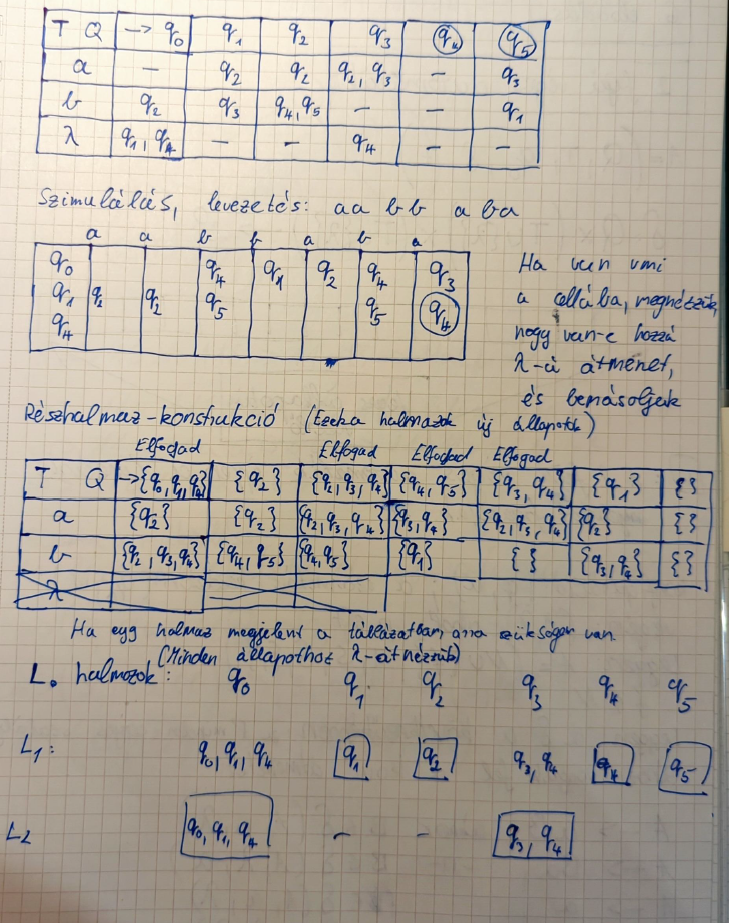 T Q → q0 q1 q2 q3 q4 q5
a – q2 q2 q2, q3 – q3
b q2 q3 q4, q5 – – q1
λ q1, q4 – – q4 – –
Szimulálás, levezetés: aa bb a ba
a a b b a b a
q0 q4 q1 q2 q4 q3
q1 q2 q2 q5 q5 q4
q4
Ha van vmi
a cellába, megnézzük,
hogy van-e hozzá
λ-á átmenet,
és bemásoljuk
Részhalmaz-konstrukció (Ezek a halmazok új állapotok)
Elfogad Elfogad Elfogad Elfogad
T Q →{q0, q1, q4} {q2} {q2, q3, q4} {q4, q5} {q3, q4} {q1} { }
a {q2} {q2} {q2, q3, q4} {q3, q4} {q2, q3, q4} {q2} { }
b {q2, q3, q4} {q4, q5} {q4, q5} {q1} { } {q3, q4} { }
λ
Ha egy halmaz megjelent a táblázatban, arra szükségem van.
(Minden állapothoz λ-át nézzük)
L0 halmozok: q0 q1 q2 q3 q4 q5
L1: q0, q1, q4 q1 q2 q3, q4 q4 q5
L2 q0, q1, q4 – – q3, q4